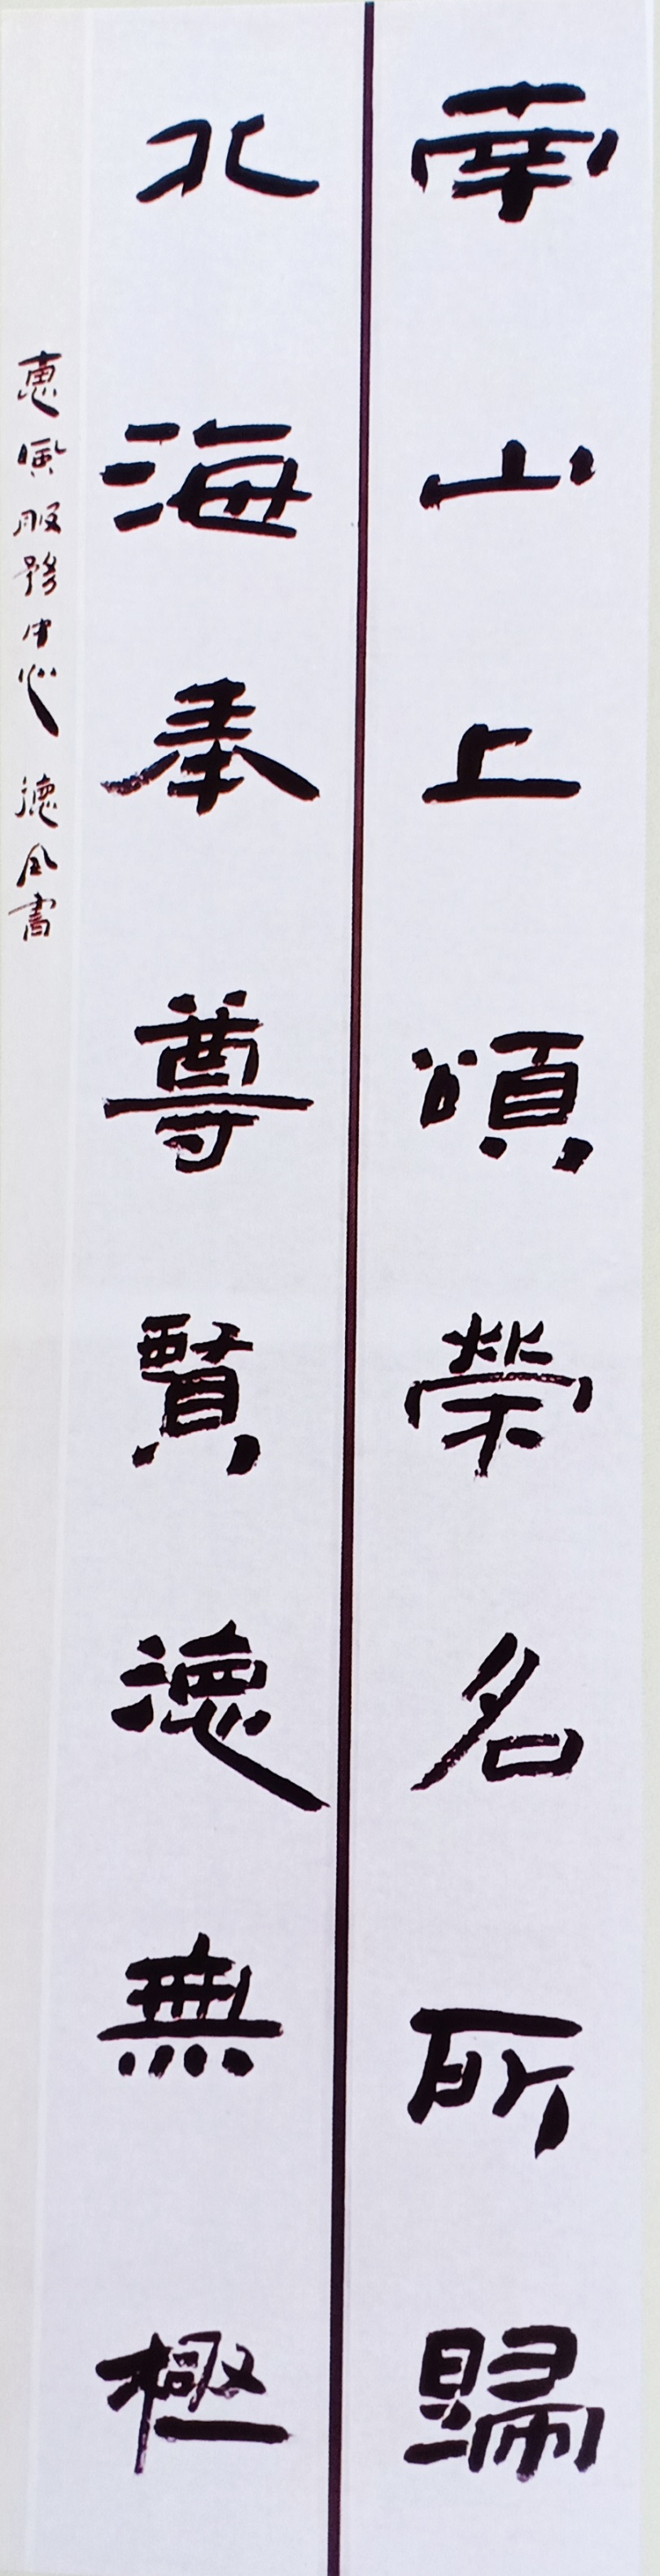 南山上頌榮名所歸
北海奉尊賢德無極
惠暝服務中心 德風書